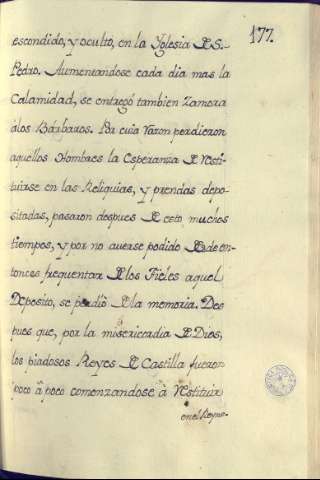 177.
escondido, y oculto, en la Yglesia de S.
Pedro. Aumentandose cada dia mas la
Calamidad, se entregó tambien Zamora
álos Bárbaros. Por cuia razon perdieron
aquellos Hombres la Esperanza de resti-
tuirse en las Reliquias, y prendas depo-
sitadas, pasaron despues de esto muchos
tiempos, y por no averse podido desde en-
tonces frequentar de los Fieles aquel
Deposito, se perdió de la memoria. Des
pues que, por la misericordia de Dios,
los piadosos Reyes de Castilla fueron
poco á poco comenzandose á restituir
en el Reyno-